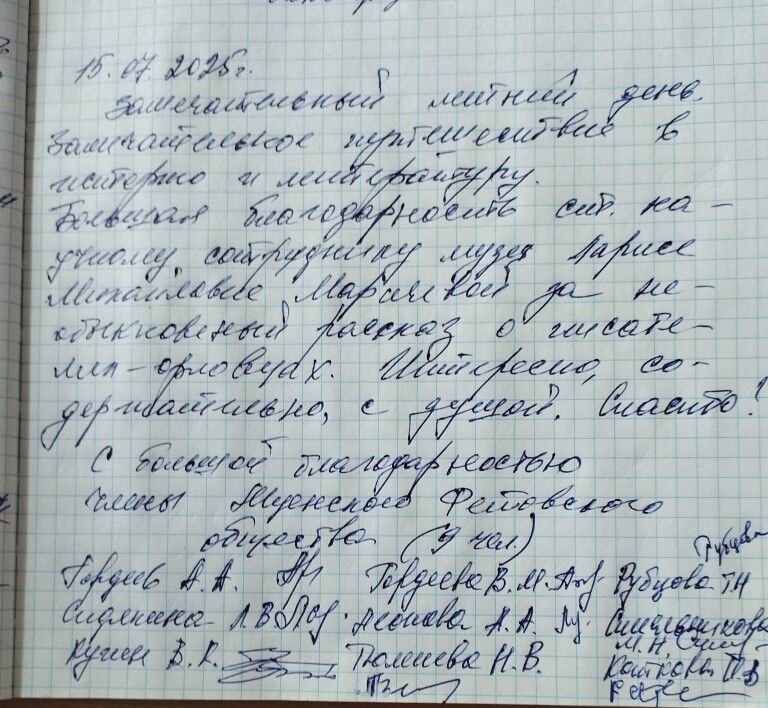 15.07.2025г.
Замечательный летний день.
Замечательное путешествие в
историю и литературу.
Большая благодарность ст. на-
учному сотруднику музея Ларисе
Михайловне Маричевой за не-
обыкновенный рассказ о писате-
лях-орловцах. Интересно, со-
держательно, с душой. Спасибо!
С большой благодарностью
члены Мценского Фетовского
общества (9 чел.)
Рубцова
Гордеев А.А. Гордеева В.М. Рубцова Т.Н
Сидякина Л.В. Леонова А.А. Синельникова
М.Н.
Кузин В.К. Тюленева Н.В. Каткова